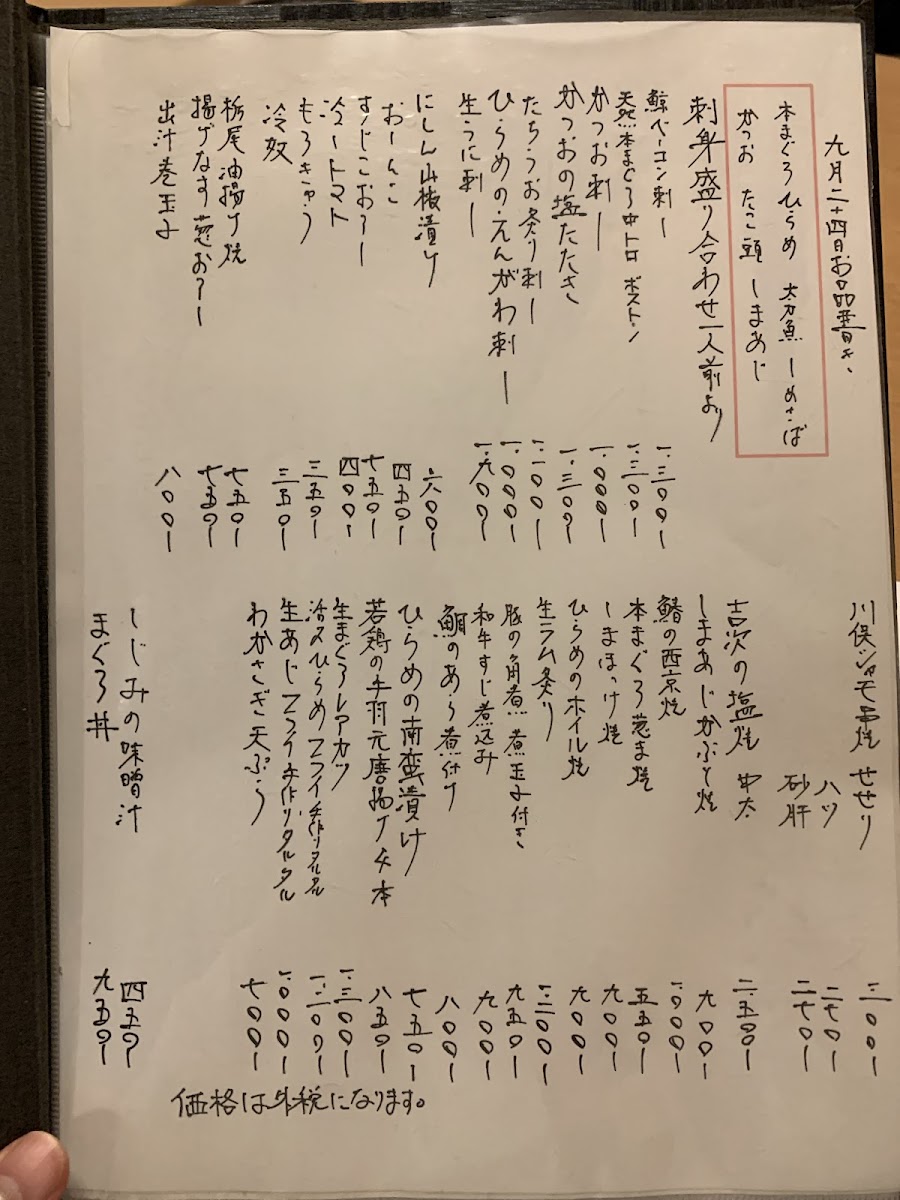 九月二十四日お品書き、
本まぐろ ひらめ 太刀魚 しめさば
かつお たこ頭 しまあじ
刺身盛り合わせ一人前より
鯨ベーコン刺し 一.三〇〇-
天然本まぐろ中トロ ボストン 一.三〇〇-
かつお刺し 一.〇〇〇-
かつおの塩たたき 一.三〇〇-
たちうお炙り刺し 一.一〇〇-
ひらめのえんがわ刺し 一.〇〇〇-
生うに刺し 一.九〇〇-
にしん山椒漬け 六〇〇-
おしんこ 四五〇-
すじこおろし 七五〇-
冷しトマト 四〇〇-
もろきゅう 三五〇-
冷奴 三五〇-
栃尾油揚げ焼 七五〇-
揚げなす葱おろし 七五〇-
出汁巻玉子 八〇〇-
川俣シャモ串焼 せせり 三〇〇-
ハツ 二七〇-
砂肝 二七〇-
吉次の塩焼 中太 二.五〇〇-
しまあじかぶと焼 九〇〇-
鰆の西京焼 一.〇〇〇-
本まぐろ葱ま焼 五五〇-
しまほっけ焼 九〇〇-
ひらめのホイル焼 九〇〇-
生ラム炙り 一.二〇〇-
豚の角煮 煮玉子付き 九五〇-
和牛すじ煮込み 九〇〇-
鯛のあら煮付け 八〇〇-
ひらめの南蛮漬け 七五〇-
若鶏の手羽元唐揚げ 4本 八五〇-
生まぐろレアカツ 一.三〇〇-
活〆ひらめフライ手作りタルタル 一.二〇〇-
生あじフライ手作りタルタル 一.〇〇〇-
わかさぎ天ぷら 七〇〇-
しじみの味噌汁 四五〇-
まぐろ丼 九五〇-
価格は外税になります。